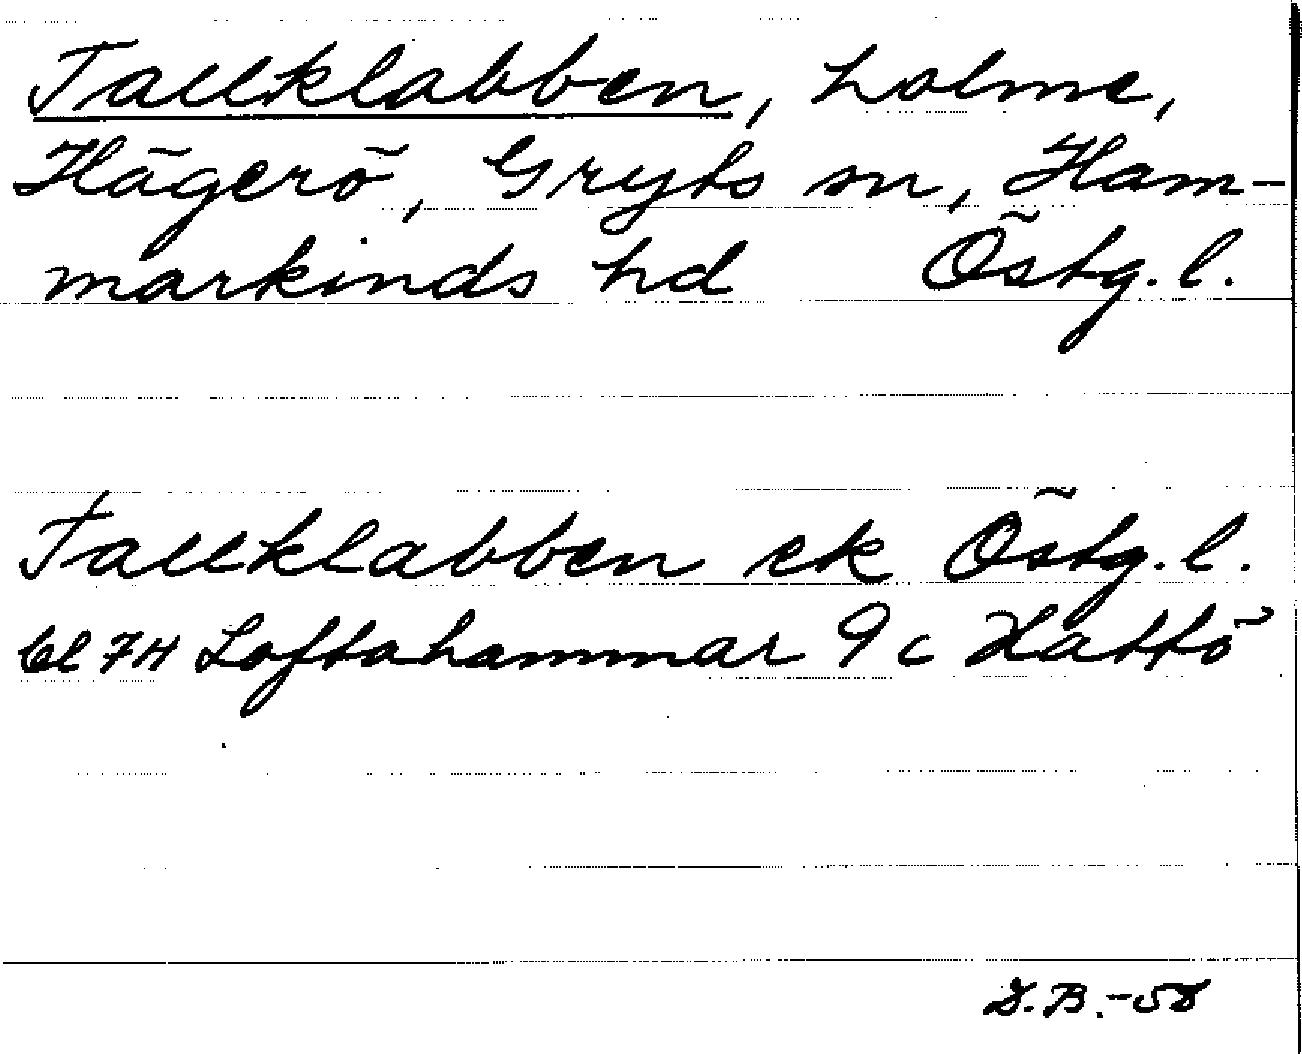 Tallklabben, holme,
Hägerö, Gryts sn, Ham-
markinds hd Östg. l.
Tallklabben ek Östg. l.
bl 7H Loftahammar 9c Kattö
D.B.-58